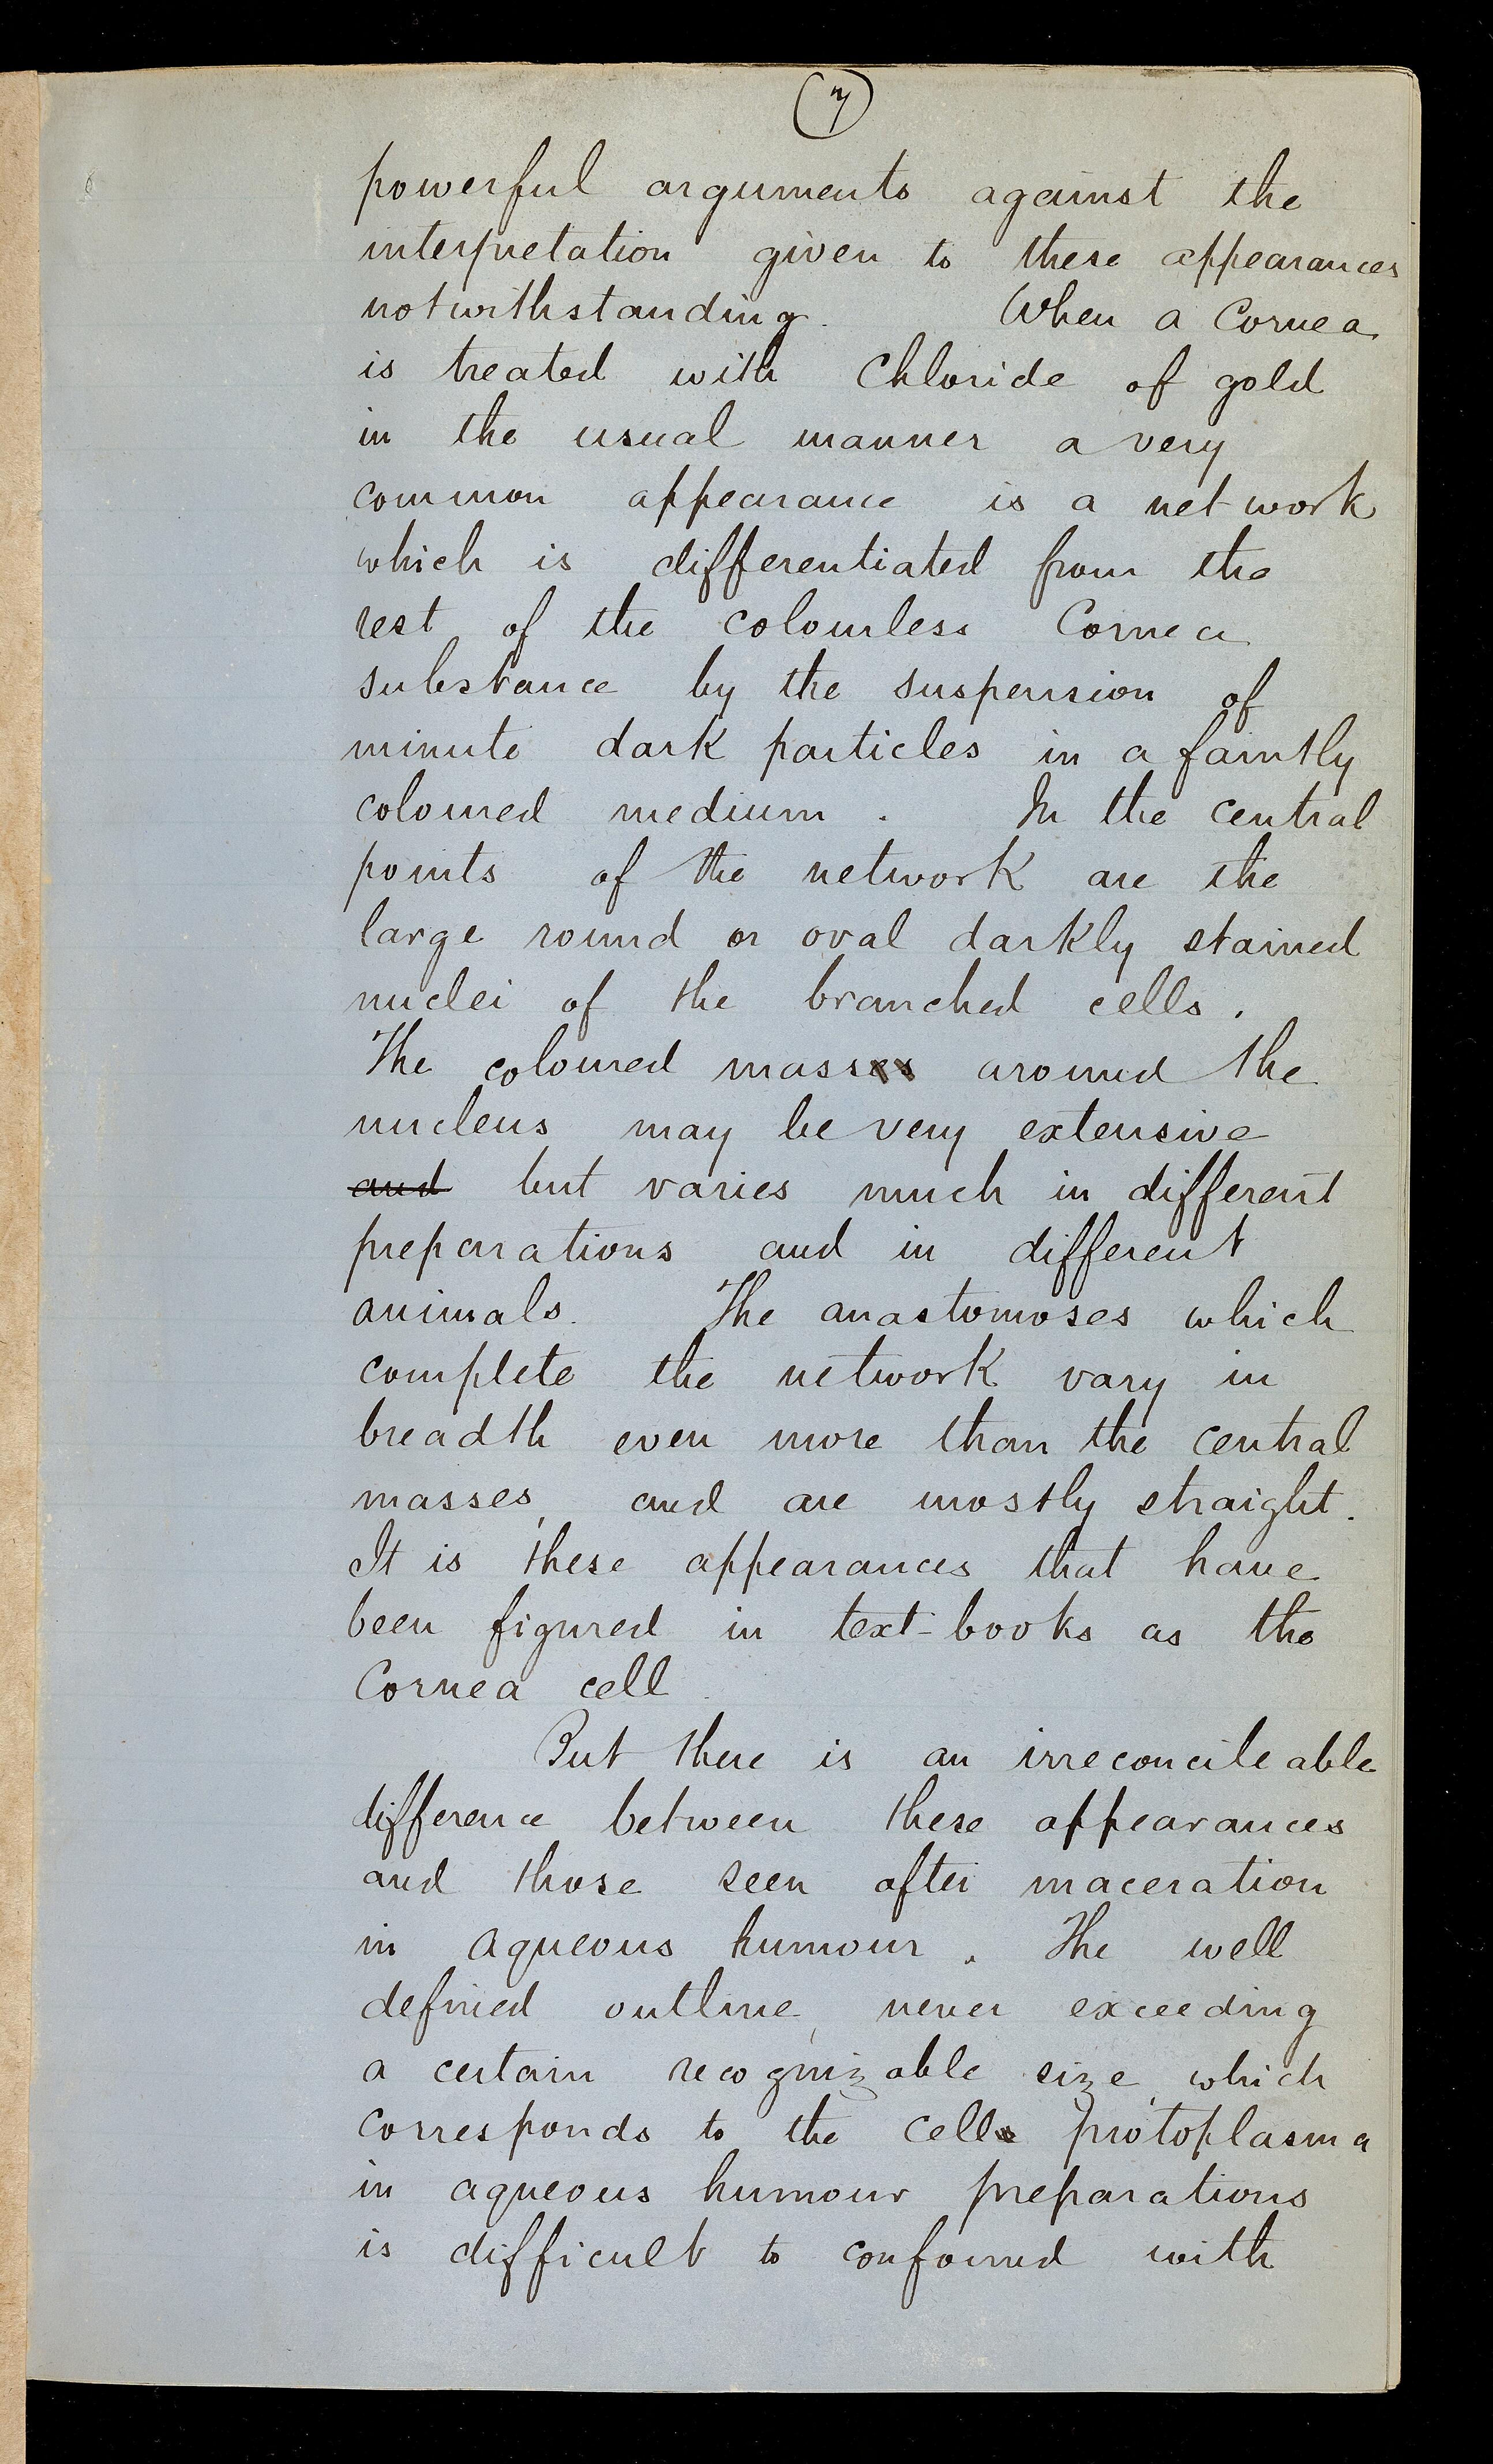 7
powerful arguments against the
interpretation given to these appearances
notwithstanding. When a Cornea
is treated with Chloride of gold
in the usual manner a very
common appearance is a net work
which is differentiated from the
rest of the colourless Cornea
substance by the suspension of
minute dark particles in a faintly
coloured medium. In the central
points of the network are the
large round or oval darkly stained
nuclei of the branched cells.
The coloured mass around the
nucleus may be very extensive
and but varies much in different
preparations and in different
animals. The anastomoses which
complete the network vary in
breadth even more than the central
masses, and are mostly straight.
It is these appearances that have
been figured in text-books as the
Cornea cell.
But there is an irreconcileable
difference between these appearances
and those seen after maceration
in aqueous humour. The well
defined outline, never exceeding
a certain recognizable size, which
corresponds to the cell protoplasma
in aqueous humour preparations
is difficult to confound with